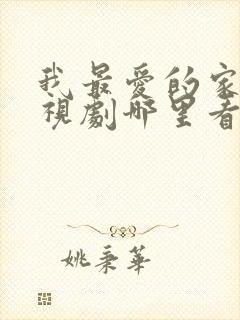 我最愛的家
視劇哪里看
姚秉華